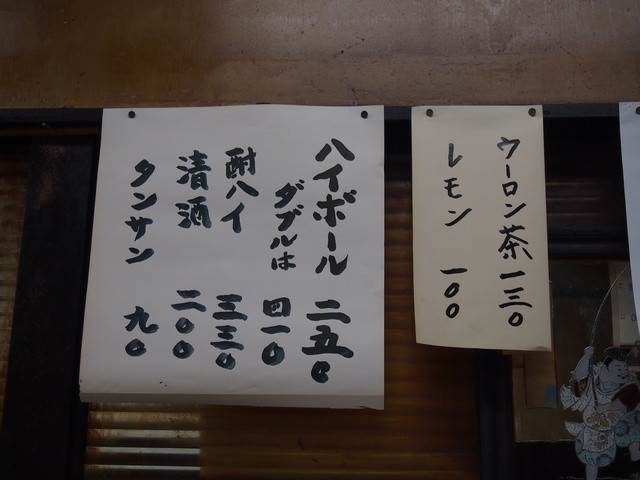 ウーロン茶 一三〇
レモン 一〇〇
ハイボール 二五〇
ダブルは 四一〇
酎ハイ 三三〇
清酒 二〇〇
タンサン 九〇